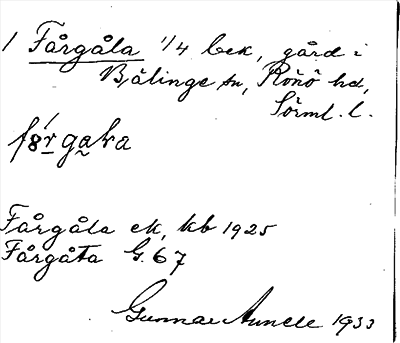 1 Fårgåla 1/4 bek, gård i
Bälinge sn, Rönö hd,
Sörml. l.
Fårgåla ek, kb 1925
Fårgåta G. 67
Gunnar 1933